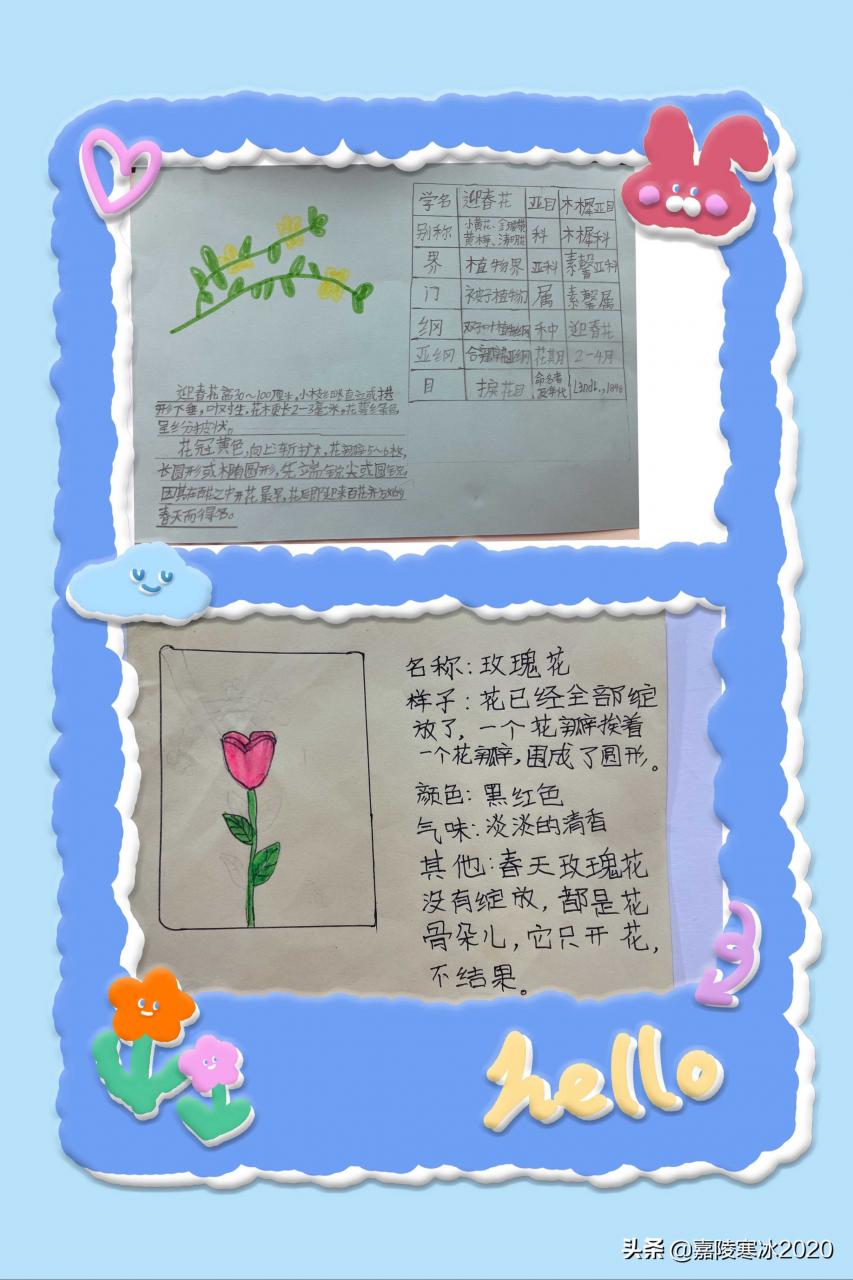 学名 迎春花 亚目 木樨亚目
别称 小黄花、金腰带 黄梅、清明花 科 木樨科
界 植物界 亚科 素馨亚科
门 被子植物门 属 素馨属
纲 双子叶植物纲 种 迎春花
亚纲 合瓣花亚纲 花期 2-4月
目 捩花目 命名者及年代 Lindl.,1846
迎春花高30~100厘米,小枝细长直立或拱
形下垂,叶对生,花梗长2-3毫米,花萼绿色
呈
花冠黄色,向上渐扩大,花瓣5~6枚,
长圆形或椭圆形,先端锐尖或圆钝
因其在百花之中开花最早,花后即迎来百花齐放的
春天而得名。
名称:玫瑰花
样子:花已经全部绽
放了,一个花瓣挨着
一个花瓣,围成了圆形。
颜色:黑红色
气味:淡淡的清香
其他:春天玫瑰花
没有绽放,都是花
骨朵儿,它只开花,
不结果。
hello
头条 @嘉陵寒冰2020